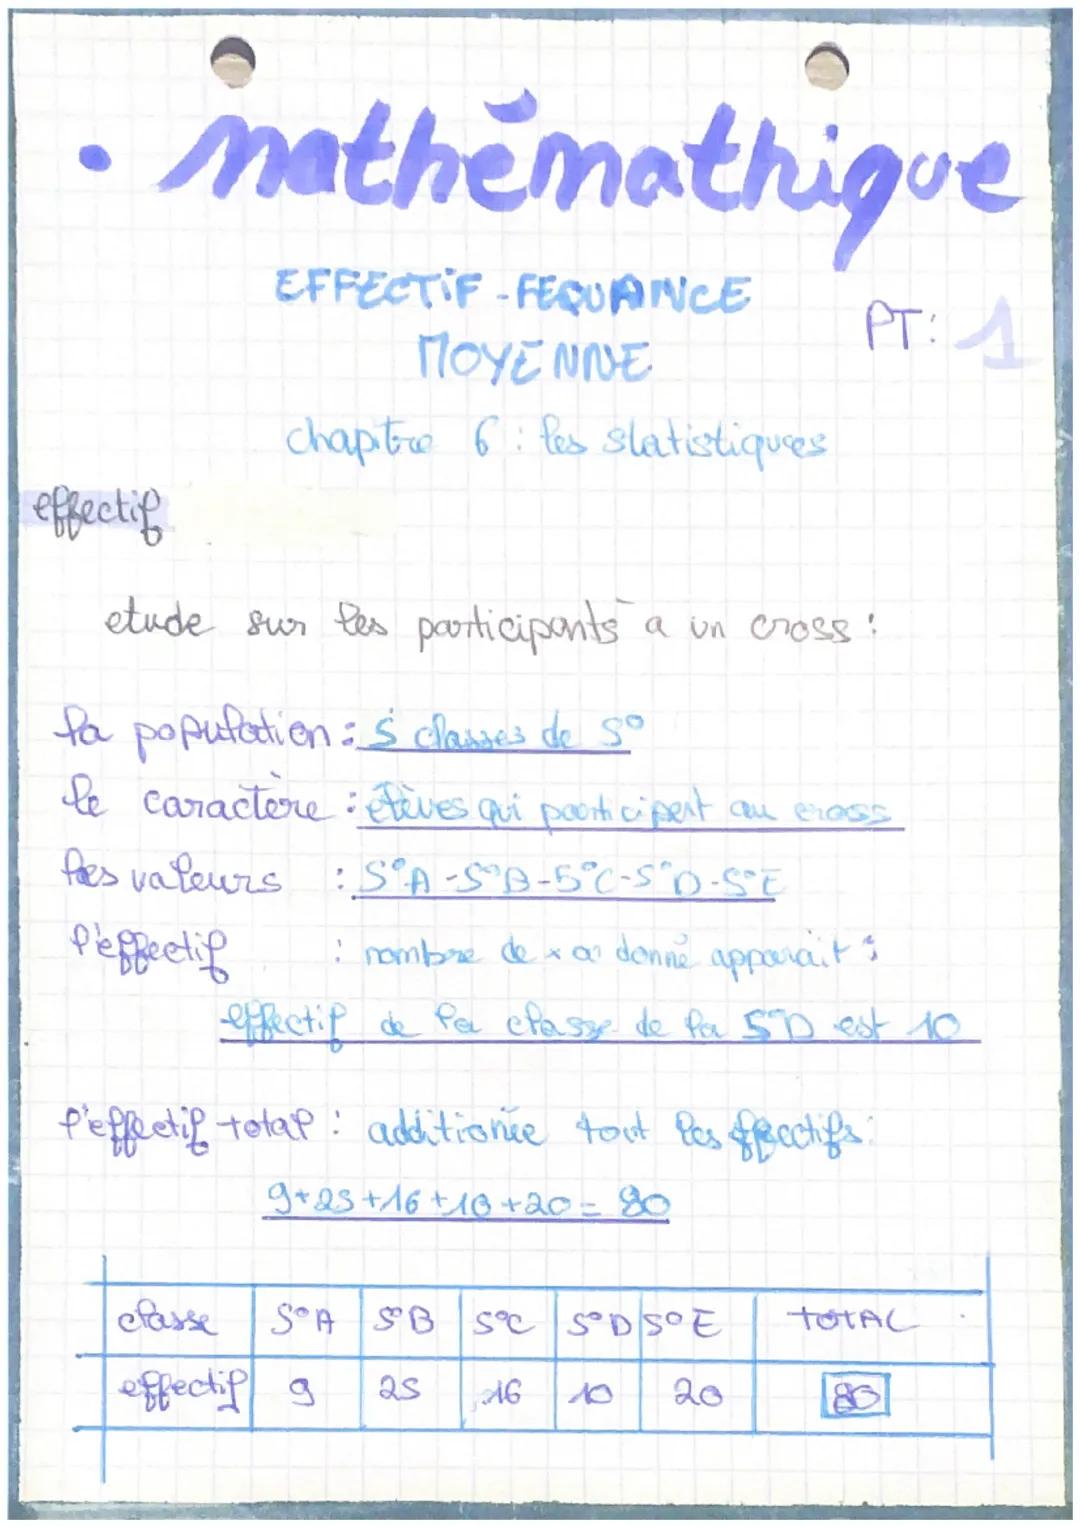 • mathémathique
EFFECTIF - FEQUANCE
MOYENNE
PT: 1
chapitre 6 : les statistiques
effectif
etude sur les participants a un cross :
la population : 5 classes de 5°
le caractère : élèves qui participent au cross
les valeurs : 5°A - 5°B - 5°C - 5°D - 5°E
l'effectif : nombre de x où donné apparait :
effectif de la classe de la 5°D est 10
l'effectif total : additionée tout les effectifs :
9+25+16+10+20 = 80
classe 5°A 5°B 5°C 5°D 5°E TOTAL
effectif 9 25 16 10 20 80